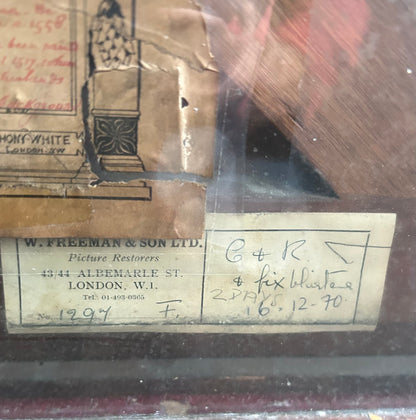 a 1558
been
HONY·WHITE
LONDON·SW
W. FREEMAN & SON LTD.
Picture Restorers
43/44 ALBEMARLE ST.
LONDON, W.1.
Tel: 01-493-0565
No. 1297 F.
C & R
& fix blisters
2 DAYS
16.12-70.